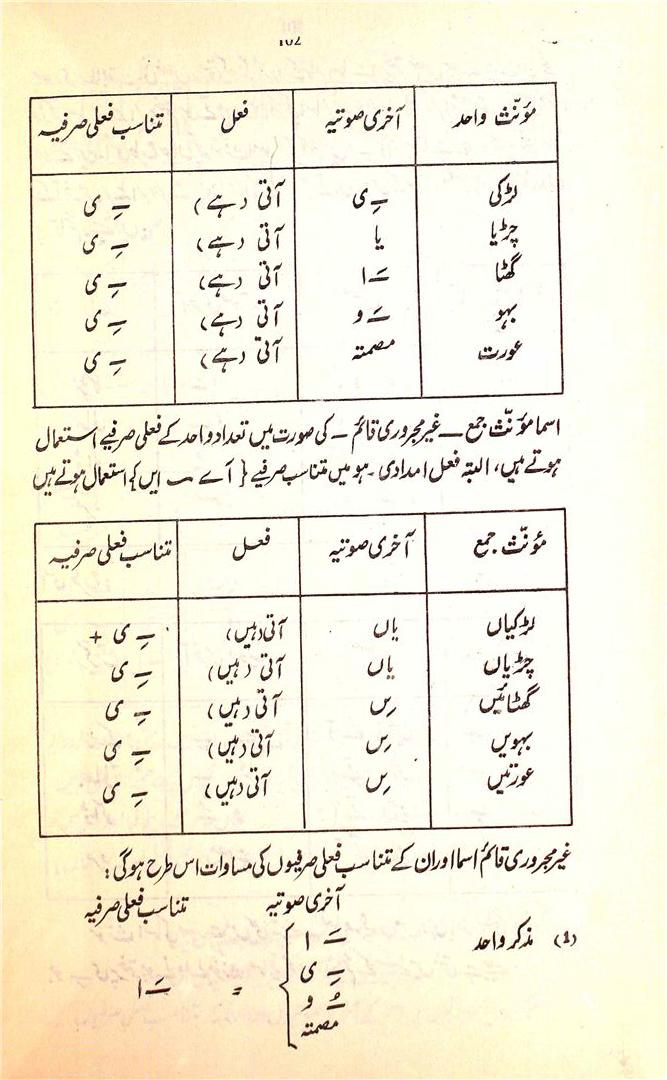 مؤنّث واحد آخری صوتیہ فعل تناسب فعلی صرفیہ
لڑکی ـِ ی آتی (ہے) ـِ ی
چڑیا یا آتی (ہے) ـِ ی
گھٹا ـَ ا آتی (ہے) ـِ ی
بہو ـَ و آتی (ہے) ـِ ی
عورت مصمتہ آتی (ہے) ـِ ی
اسما مؤنّث جمع ـ غیر مجروری قائم ـ کی صورت میں تعداد واحد کے فعلی صرفیے استعمال
ہوتے ہیں، البتہ فعل امدادی ۔ہو میں متناسب صرفیے { آے ~ ایں} استعمال ہوتے ہیں
مؤنّث جمع آخری صوتیہ فعل تناسب فعلی صرفیہ
لڑکیاں یاں آتی (ہیں) ـِ ی +
چڑیاں یاں آتی (ہیں) ـِ ی
گھٹائیں یں آتی (ہیں) ـِ ی
بہویں یں آتی (ہیں) ـِ ی
عورتیں یں آتی (ہیں) ـِ ی
غیر مجروری قائم اسما اور ان کے تناسب فعلی صرفیوں کی مساوات اس طرح ہوگی :
آخری صوتیہ تناسب فعلی صرفیہ
(1) مذکر واحد ـَ ا
ـِ ی
ـُ و = ـَ ا
مصمتہ